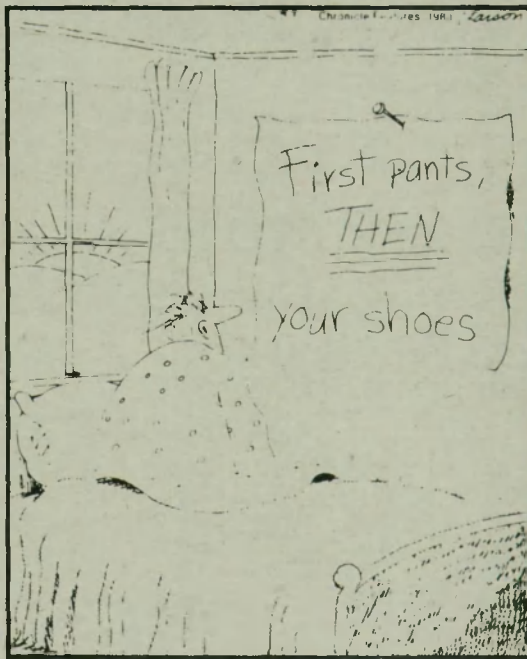 Chronicle Features, 1980 Larson
First pants,
THEN
your shoes